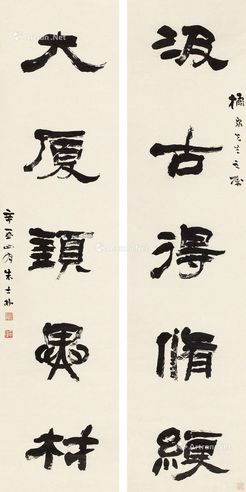 橘泉先生之屬
汲古得脩綆
大厦須異材
辛酉四月朱士林